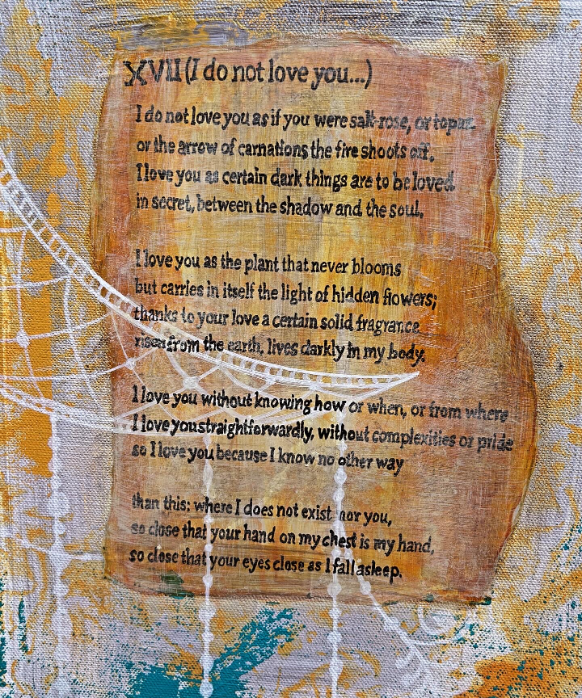 XVII (I do not love you...)
I do not love you as if you were salt-rose, or topaz
or the arrow of carnations the fire shoots off.
I love you as certain dark things are to be loved
in secret, between the shadow and the soul.
I love you as the plant that never blooms
but carries in itself the light of hidden flowers;
thanks to your love a certain solid fragrance
risen from the earth, lives darkly in my body.
I love you without knowing how or when, or from where
I love you straightforwardly, without complexities or pride
so I love you because I know no other way
than this: where I does not exist nor you,
so close that your hand on my chest is my hand,
so close that your eyes close as I fall asleep.